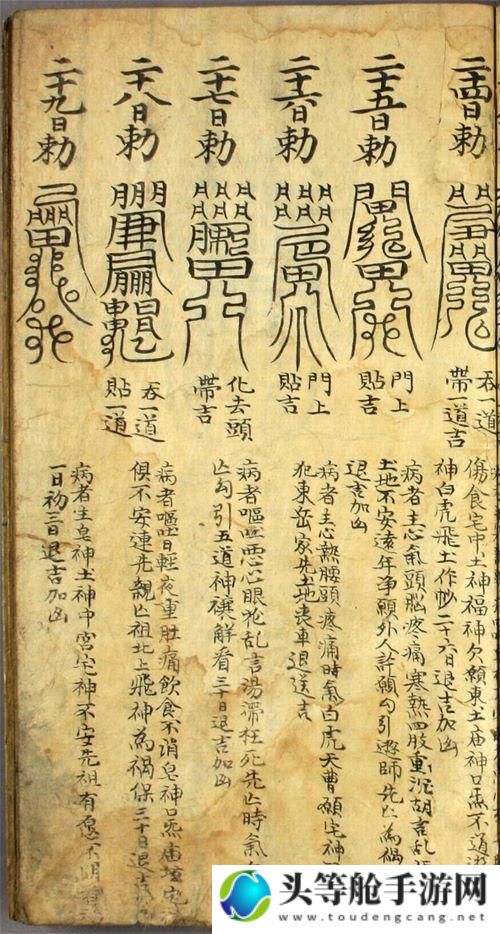 二十四日勅
二十五日勅
二十六日勅
二十七日勅
二十八日勅
二十九日勅
吞一道
帶一道吉
門上
貼吉
門上
貼吉
化去頭
帶吉
吞一道
貼一道
傷食宅中土神福神欠願東土庙神口炁不道
神白虎飛土作炒二十六日退吉加凶
病者主心氣頭脳疼痛寒熱四肢重沉胡言乱
土地不安遠年净願外人許愿勾引遊師先亡為禍
退吉加凶
病者主心熱腰頭疼痛時氣白虎天曹願宅神
犯東岳家先土地丧車退送吉
病者嘔吐悪心眼花乱言湯滞枉死先亡時氣
亡勾引五道神禳觧看三十日退吉加凶
病者嘔吐日輕夜重肚痛飲食不消皂神口炁庙壇宅
俱不安連先親亡祖北上飛神為禍保三十日退吉
病者主皂神土神中宮宅神不安先祖有愿不明
一日初三日退吉加凶
头等舱手游网
www.toudengcang.net